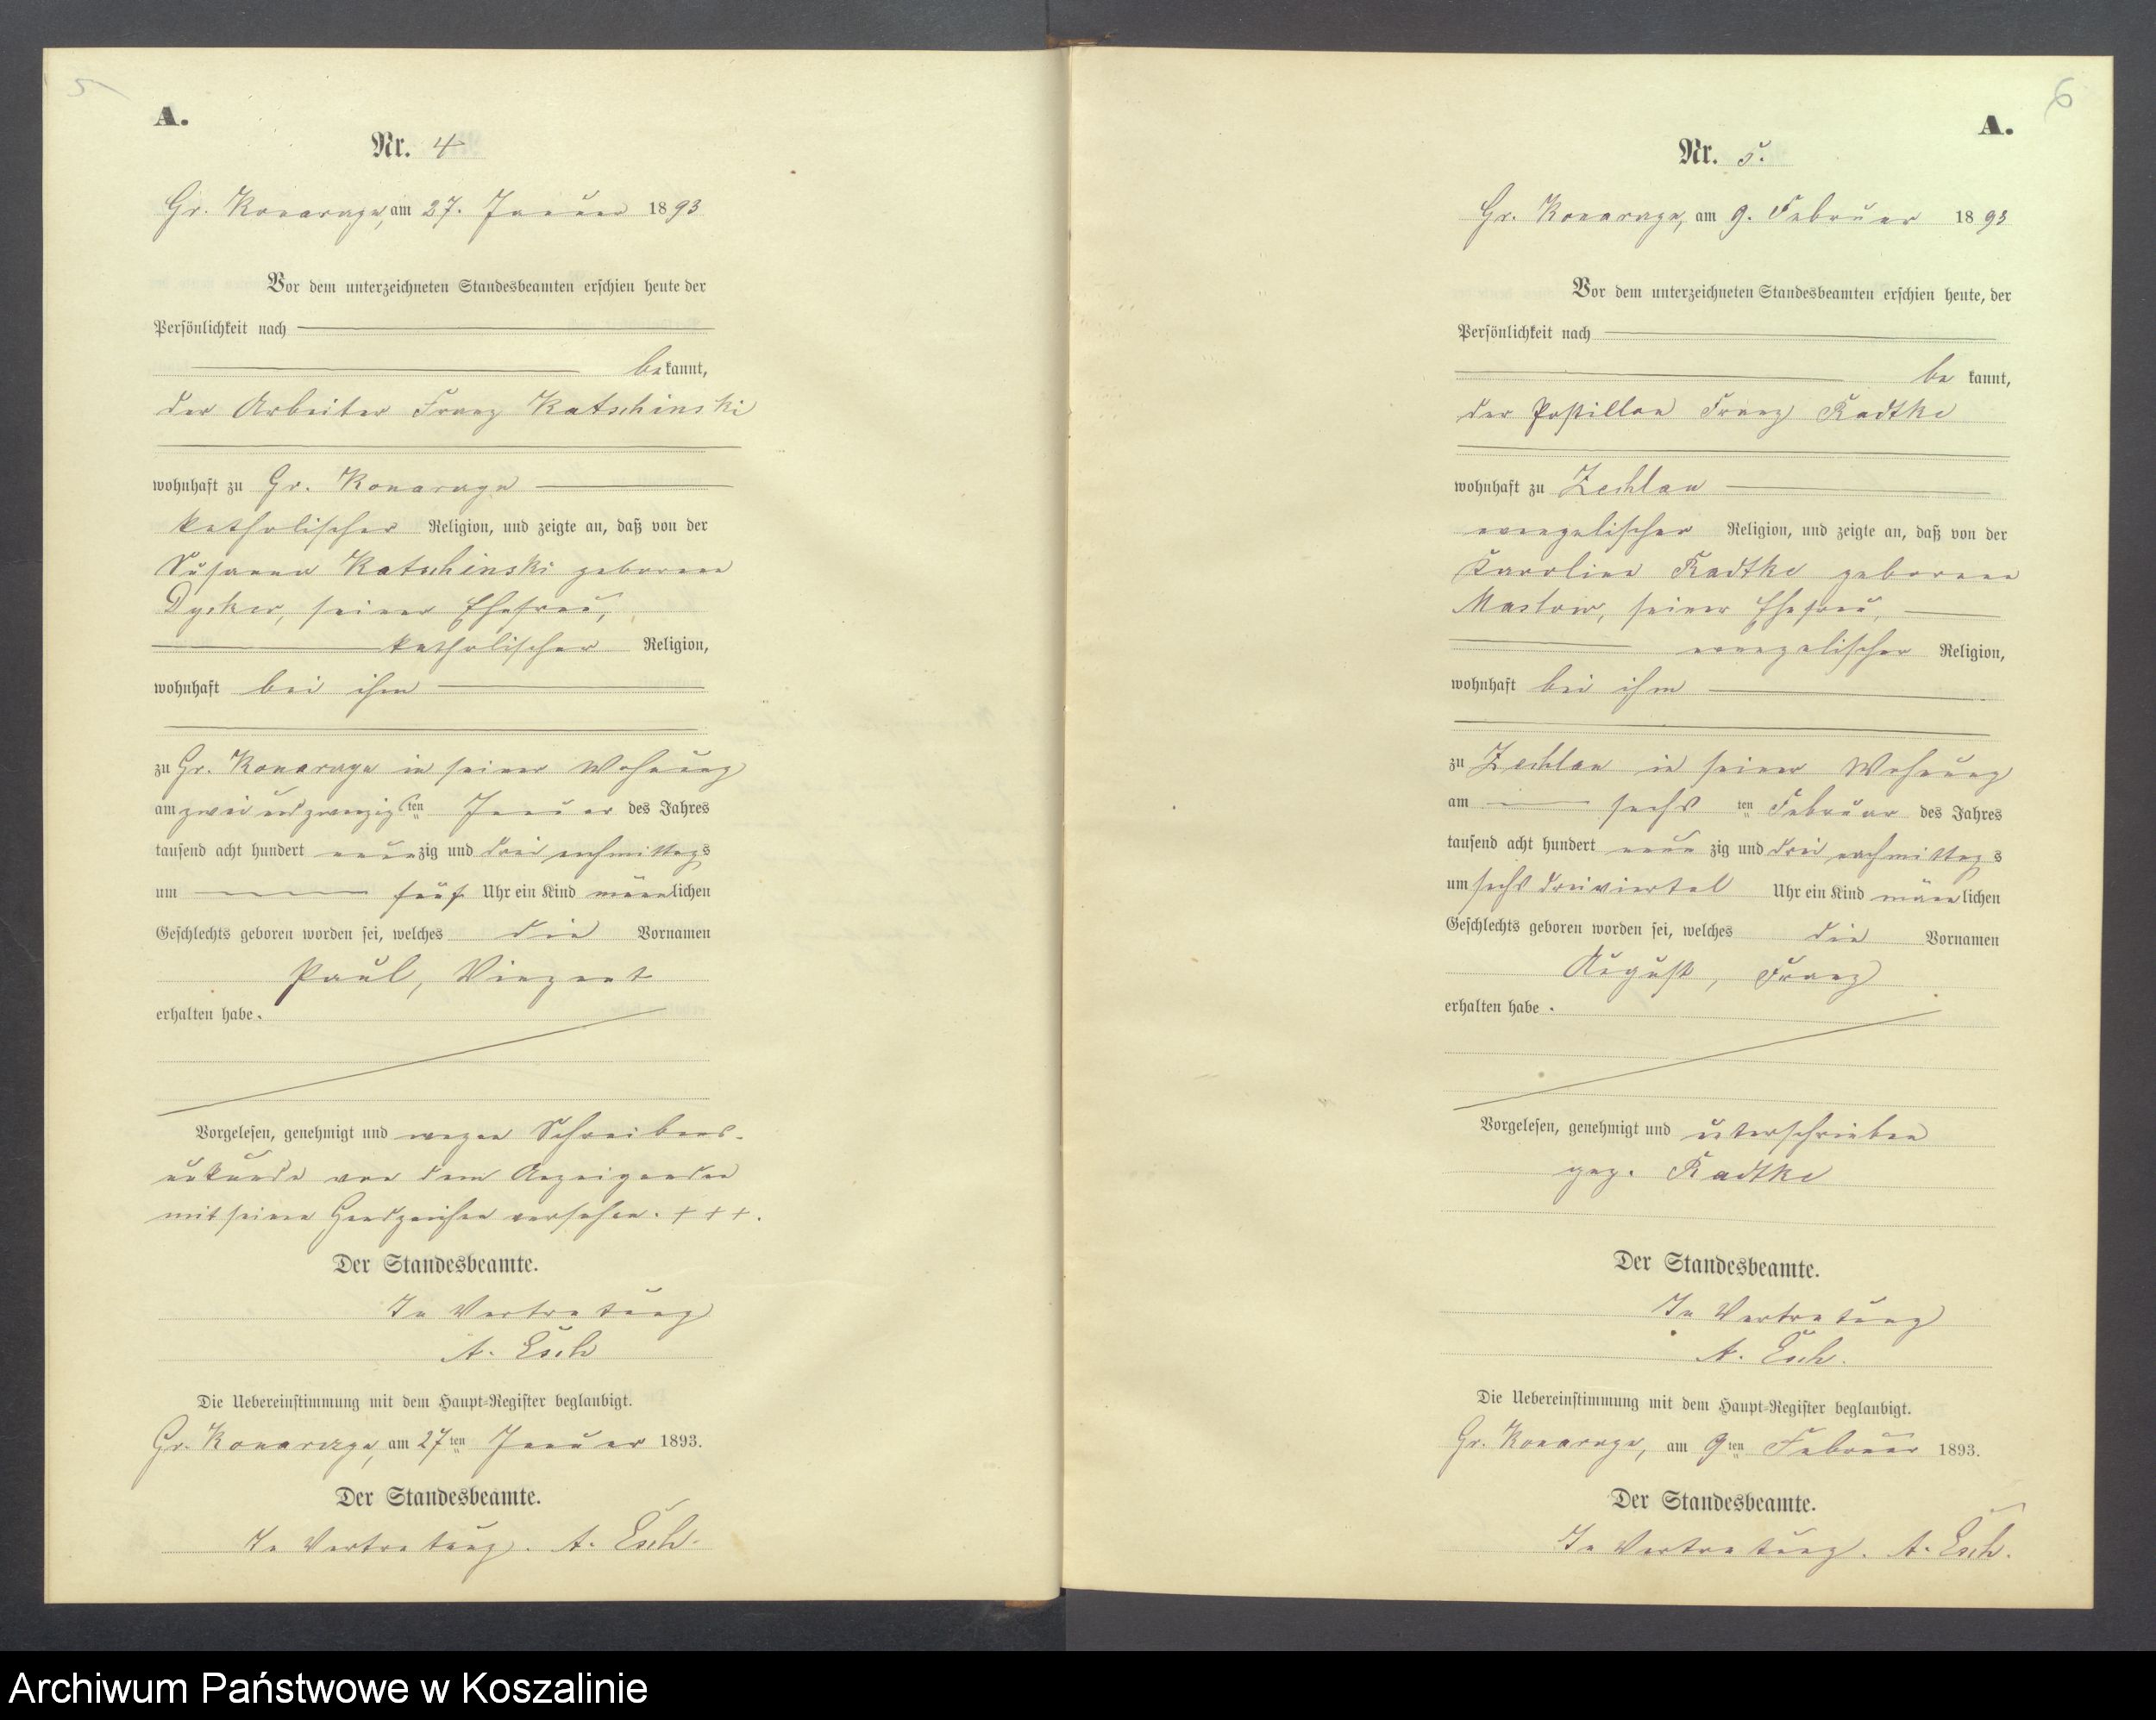 5
A.
Nr. 4
Gr. Konarczyn, am 27. Januar 1893
Vor dem unterzeichneten Standesbeamten erschien heute der
Persönlichkeit nach
bekannt,
der Arbeiter Franz Katschinski
wohnhaft zu Gr. Konarczyn
katholischer Religion, und zeigte an, daß von der
Susanna Katschinski geborene
Dycker, seiner Ehefrau,
katholischer Religion,
wohnhaft bei ihm
zu Gr. Konarczyn in seiner Wohnung
am zwei und zwanzigsten Januar des Jahres
tausend acht hundert neunzig und drei nachmittags
um fünf Uhr ein Kind männlichen
Geschlechts geboren worden sei, welches die Vornamen
Paul, Vinzent
erhalten habe.
Vorgelesen, genehmigt und wegen Schreibens-
unkunde von dem Anzeigenden
mit seinen Handzeichen versehen. + + +.
Der Standesbeamte.
In Vertretung
A. Esch
Die Uebereinstimmung mit dem Haupt-Register beglaubigt.
Gr. Konarczyn, am 27ten Januar 1893.
Der Standesbeamte.
In Vertretung. A. Esch.
6
A.
Nr. 5.
Gr. Konarczyn, am 9. Februar 1893
Vor dem unterzeichneten Standesbeamten erschien heute, der
Persönlichkeit nach
be kannt,
der Postillon Franz Radtke
wohnhaft zu Zechlau
evangelischer Religion, und zeigte an, daß von der
Karoline Radtke geborene
Mastow, seiner Ehefrau,
evangelischer Religion,
wohnhaft bei ihm
zu Zechlau in seiner Wohnung
am sechsten Februar des Jahres
tausend acht hundert neunzig und drei nachmittags
um sechs dreiviertel Uhr ein Kind männlichen
Geschlechts geboren worden sei, welches die Vornamen
August, Franz
erhalten habe.
Vorgelesen, genehmigt und unterschrieben
gez. Radtke
Der Standesbeamte.
In Vertretung
A. Esch.
Die Uebereinstimmung mit dem Haupt-Register beglaubigt.
Gr. Konarczyn, am 9ten Februar 1893.
Der Standesbeamte.
In Vertretung. A. Esch.
Archiwum Państwowe w Koszalinie